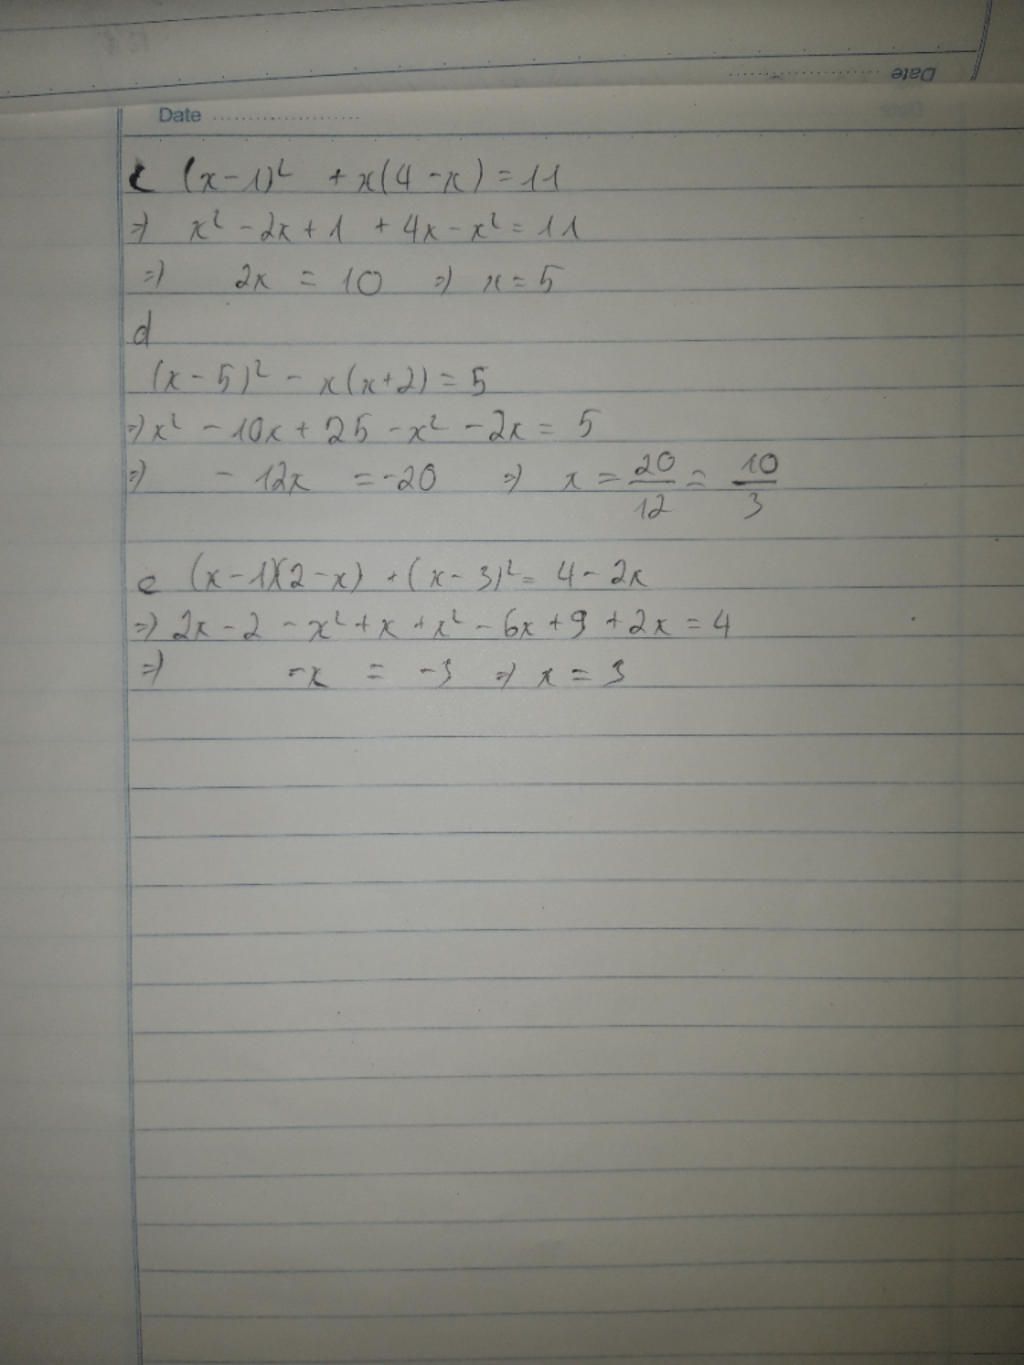 Date
Date
c (x-1)² + x(4-x) = 11
=) x² - 2x + 1 + 4x - x² = 11
=) 2x = 10 =) x = 5
d
(x-5)² - x(x+2) = 5
=) x² - 10x + 25 - x² - 2x = 5
=) -12x = -20 =) x = 20/12 = 10/3
e (x-1)(2-x) + (x-3)² = 4 - 2x
=) 2x - 2 - x² + x + x² - 6x + 9 + 2x = 4
=) -x = -3 =) x = 3